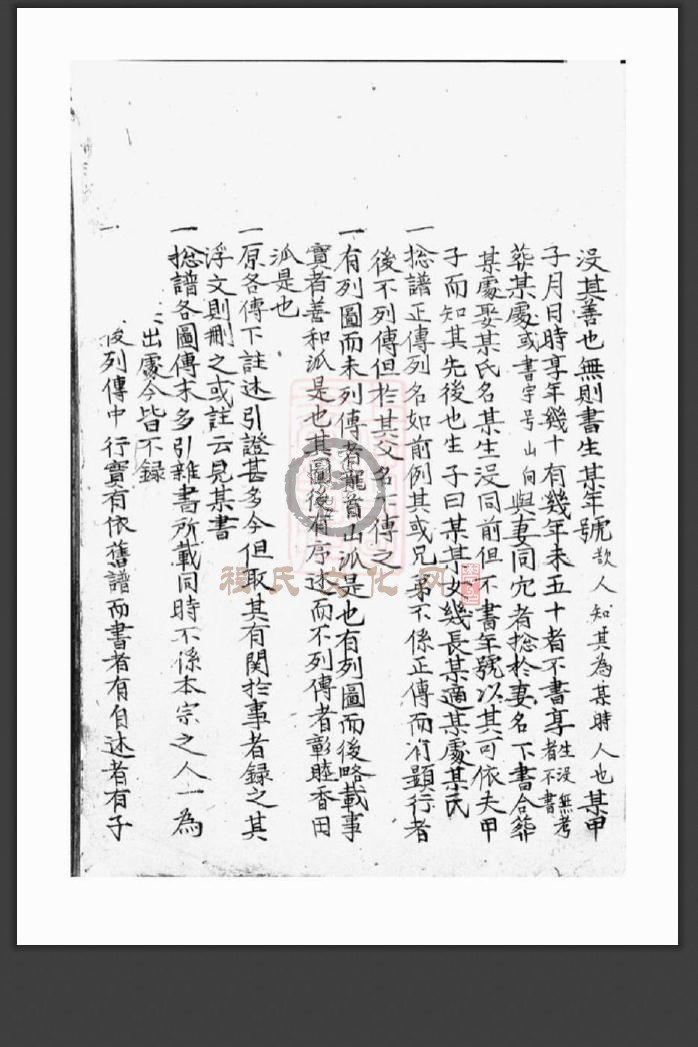 没其善也無則書生某年號欲人知其為某時人也某甲
子月日時享年幾十有幾年未五十者不書享生没無考者不書
葬某處或書字号山向與妻同穴者捴於妻名下書合葬
某處娶某氏名某生没同前但不書年號以其可依夫甲
子而知其先後也生子曰某某女幾長某適某處某氏
一捴譜正傳列名如前例其或兄弟不係正傳而有顯行者
後不列傳但於其父名下傳之
一有列圖而未列傳者寵首山派是也有列圖而後略載事
實者善和派是也其圖後有序述而不列傳者彰睦香田
派是也
一原各傳下註述引證甚多今但取其有関於事者録之其
浮文則刪之或註云見某書
一捴譜各圖傳末多引雜書所載同時不係本宗之人一為
出處今皆不録
一後列傳中行實有依舊譜而書者有自述者有子
程氏文化网